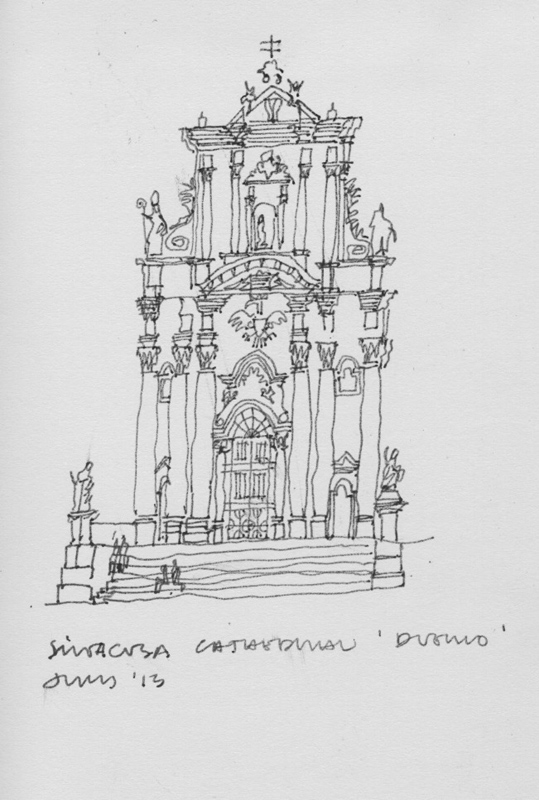 SIRACUSA CATHEDRAL 'DUOMO'
'13